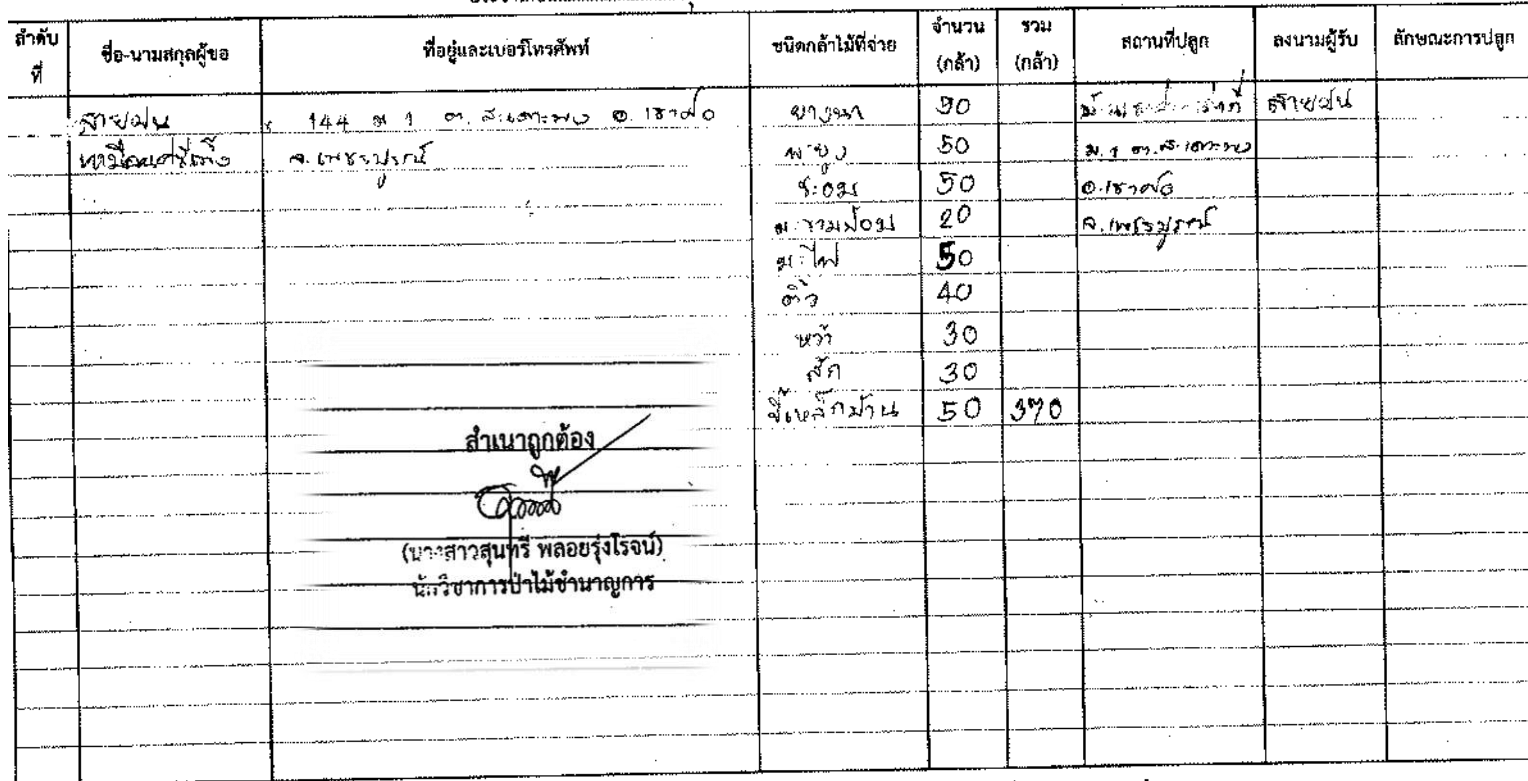 ลำดับ ชื่อ-นามสกุลผู้ขอ ที่อยู่และเบอร์โทรศัพท์ ชนิดกล้าไม้ที่จ่าย จำนวน รวม สถานที่ปลูก ลงนามผู้รับ ลักษณะการปลูก
ที่ (กล้า) (กล้า)
สายฝน 144 ม 1 ต. สะเดาะพง อ. เขาค้อ ยางนา 90 สายฝน
จ. เพชรบูรณ์ พะยูง 50 ม. 1 ต. สะเดาะพง
50 อ. เขาค้อ
มะขามป้อม 20 จ. เพชรบูรณ์
มะไฟ 50
ติ้ว 40
หว้า 30
สัก 30
ขี้เหล็กบ้าน 50 370
สำเนาถูกต้อง
(นางสาวสุนทรี พลอยรุ่งโรจน์)
นักวิชาการป่าไม้ชำนาญการ